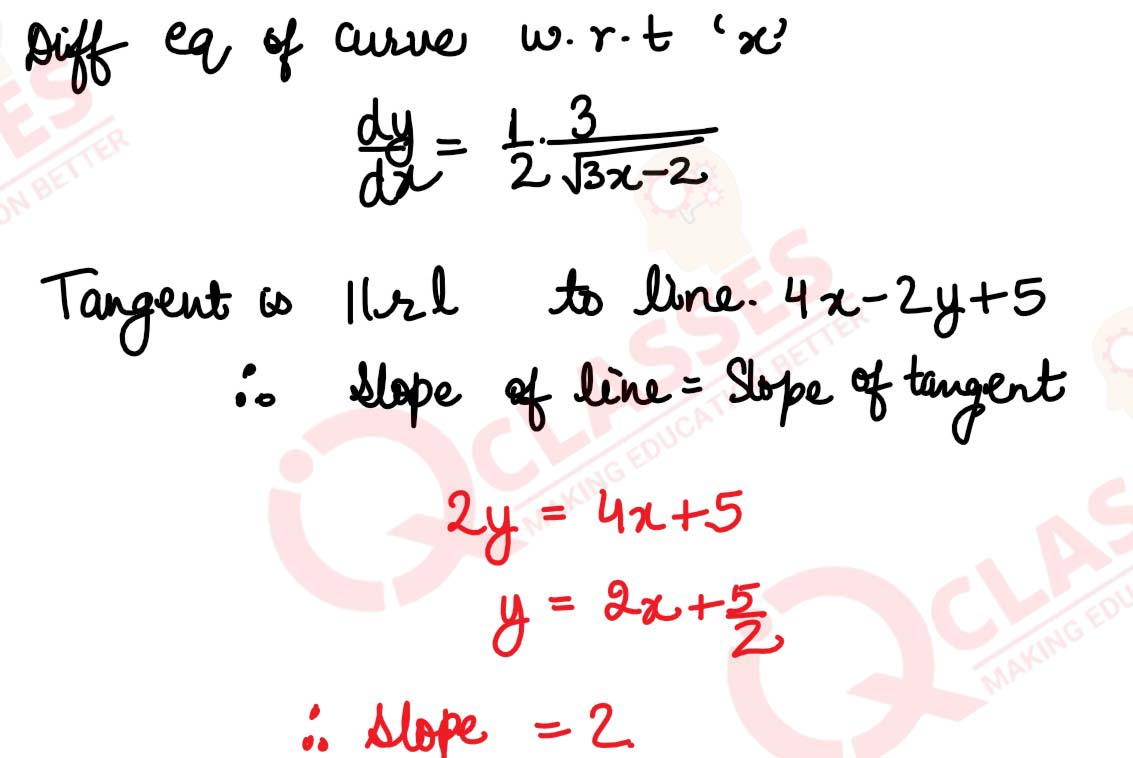 Diff eq of curve w.r.t 'x'
dy/dx = 1/2 · 3/√3x-2
Tangent is ||rl to line. 4x-2y+5
∴ Slope of line = Slope of tangent
2y = 4x+5
y = 2x+5/2
∴ Slope = 2
ES
ON BETTER
IQ CLASSES
MAKING EDUCATION BETTER
IQ CLAS
MAKING EDU